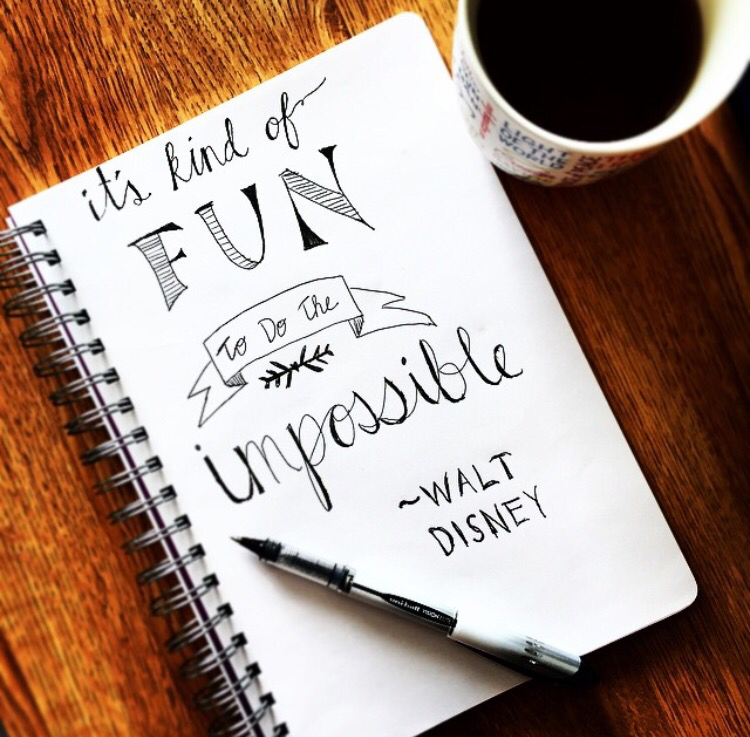 it's kind of
FUN
To Do The
impossible
~WALT
DISNEY
uni-ball